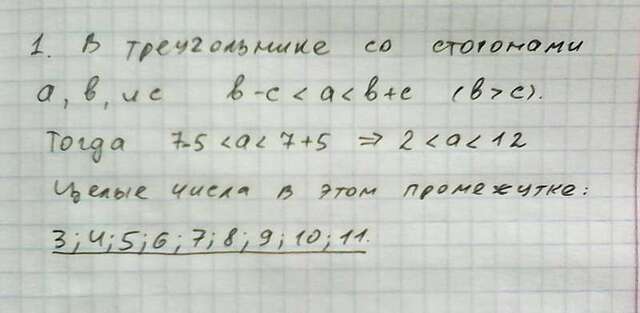 1. В треугольнике со стогонами
а, в, и с в-с < а < в+с (в > с).
Тогда 7-5 < а < 7+5 ⇒ 2 < а < 12
Целые числа в этом промежутке:
3; 4; 5; 6; 7; 8; 9; 10; 11.